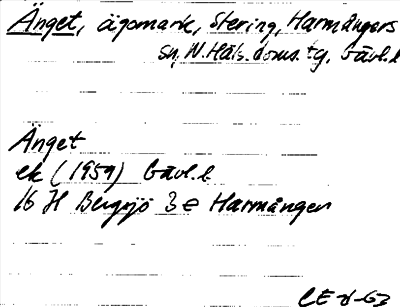 Änget, ägomark, Stering, Harmångers
sn, N. Häls. doms. tg, Gävl. l
Änget
ek (1959) Gävl. l
16 H Bergsjö 3 e Harmånger
CE -63